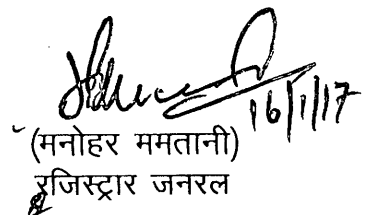 16/1/17
(मनोहर ममतानी)
रजिस्ट्रार जनरल